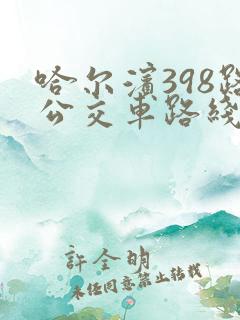 哈尔滨398路
公交车路线
許全明
未经同意禁止转载